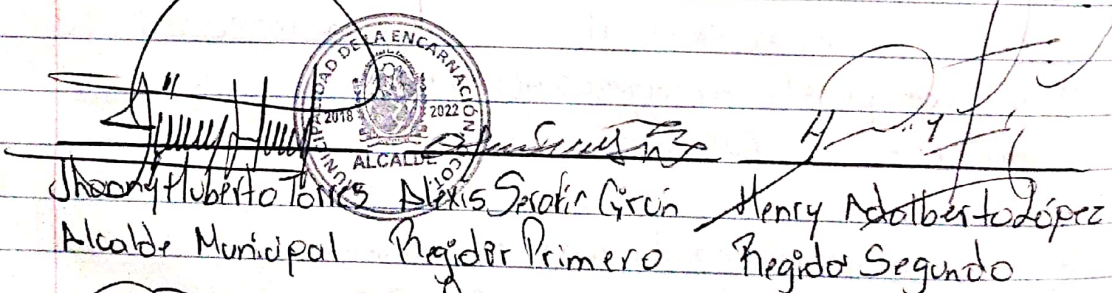 MUNICIPALIDAD DE LA ENCARNACIÓN
2018 2022
ALCALDE
Jhoony Huberto Torres Alexis Serafin Girón Henry Adalberto López
Alcalde Municipal Regidor Primero Regidor Segundo